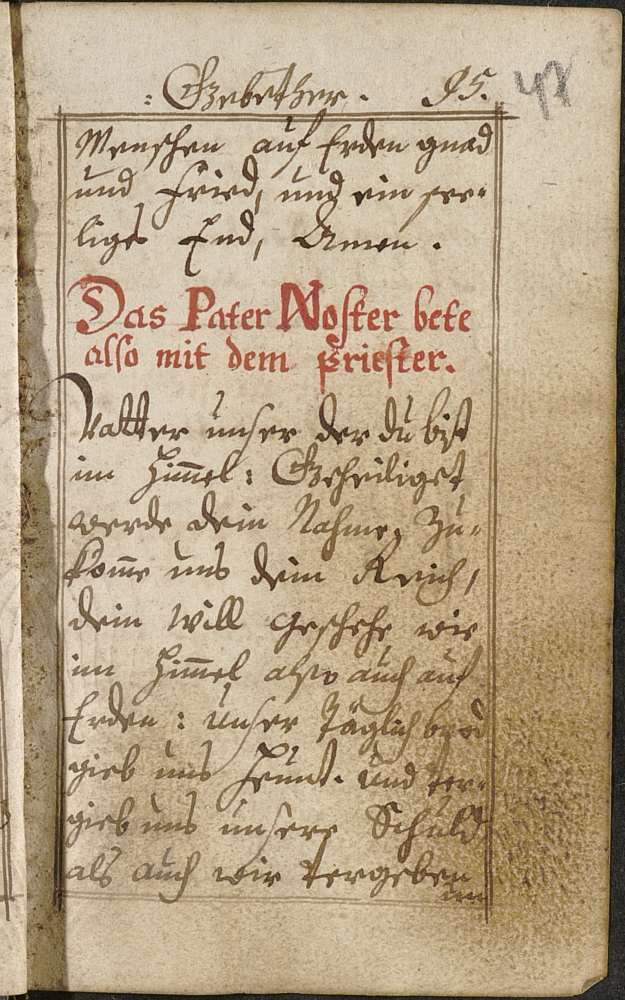 : Gebether. 95. 48
Menschen auf Erden gnad
und fried, und ein see-
liges End, Amen.
Das Pater Noster bete
also mit dem priester.
Vatter unser der du bist
im Him̄el: Geheiliget
werde dein Nahme, Zu-
kom̄e uns dein Reich,
dein will geschehe wie
im Him̄el also auch auf
Erden: unser Täglich brod
gieb uns heunt. und ver-
gieb uns unsere Schuld
als auch wir vergeben
un